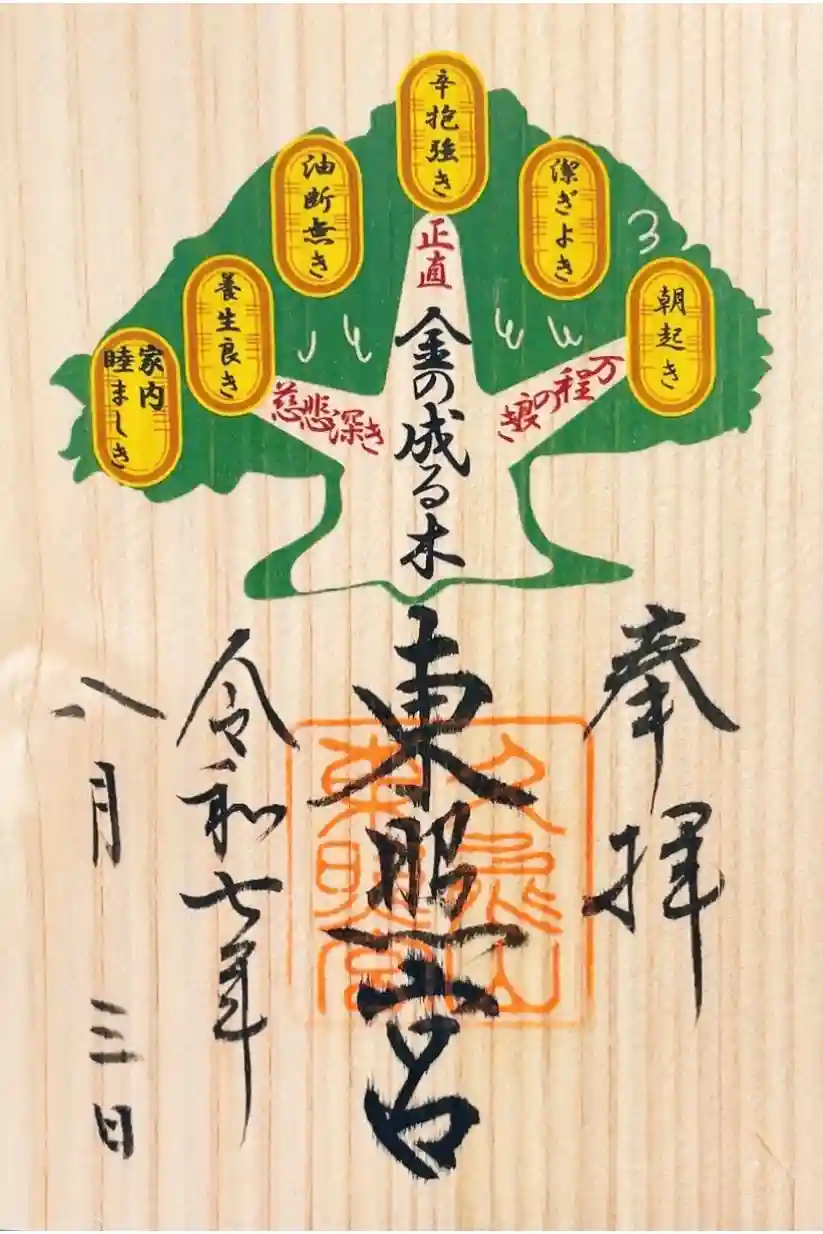 辛抱強き
潔ぎよき
油断無き
朝起き
養生良き
家内
睦ましき
正直
万程の良き
慈悲深き
金の成る木
奉拝
東照宮
久能山
東照宮
令和七年
八月三日